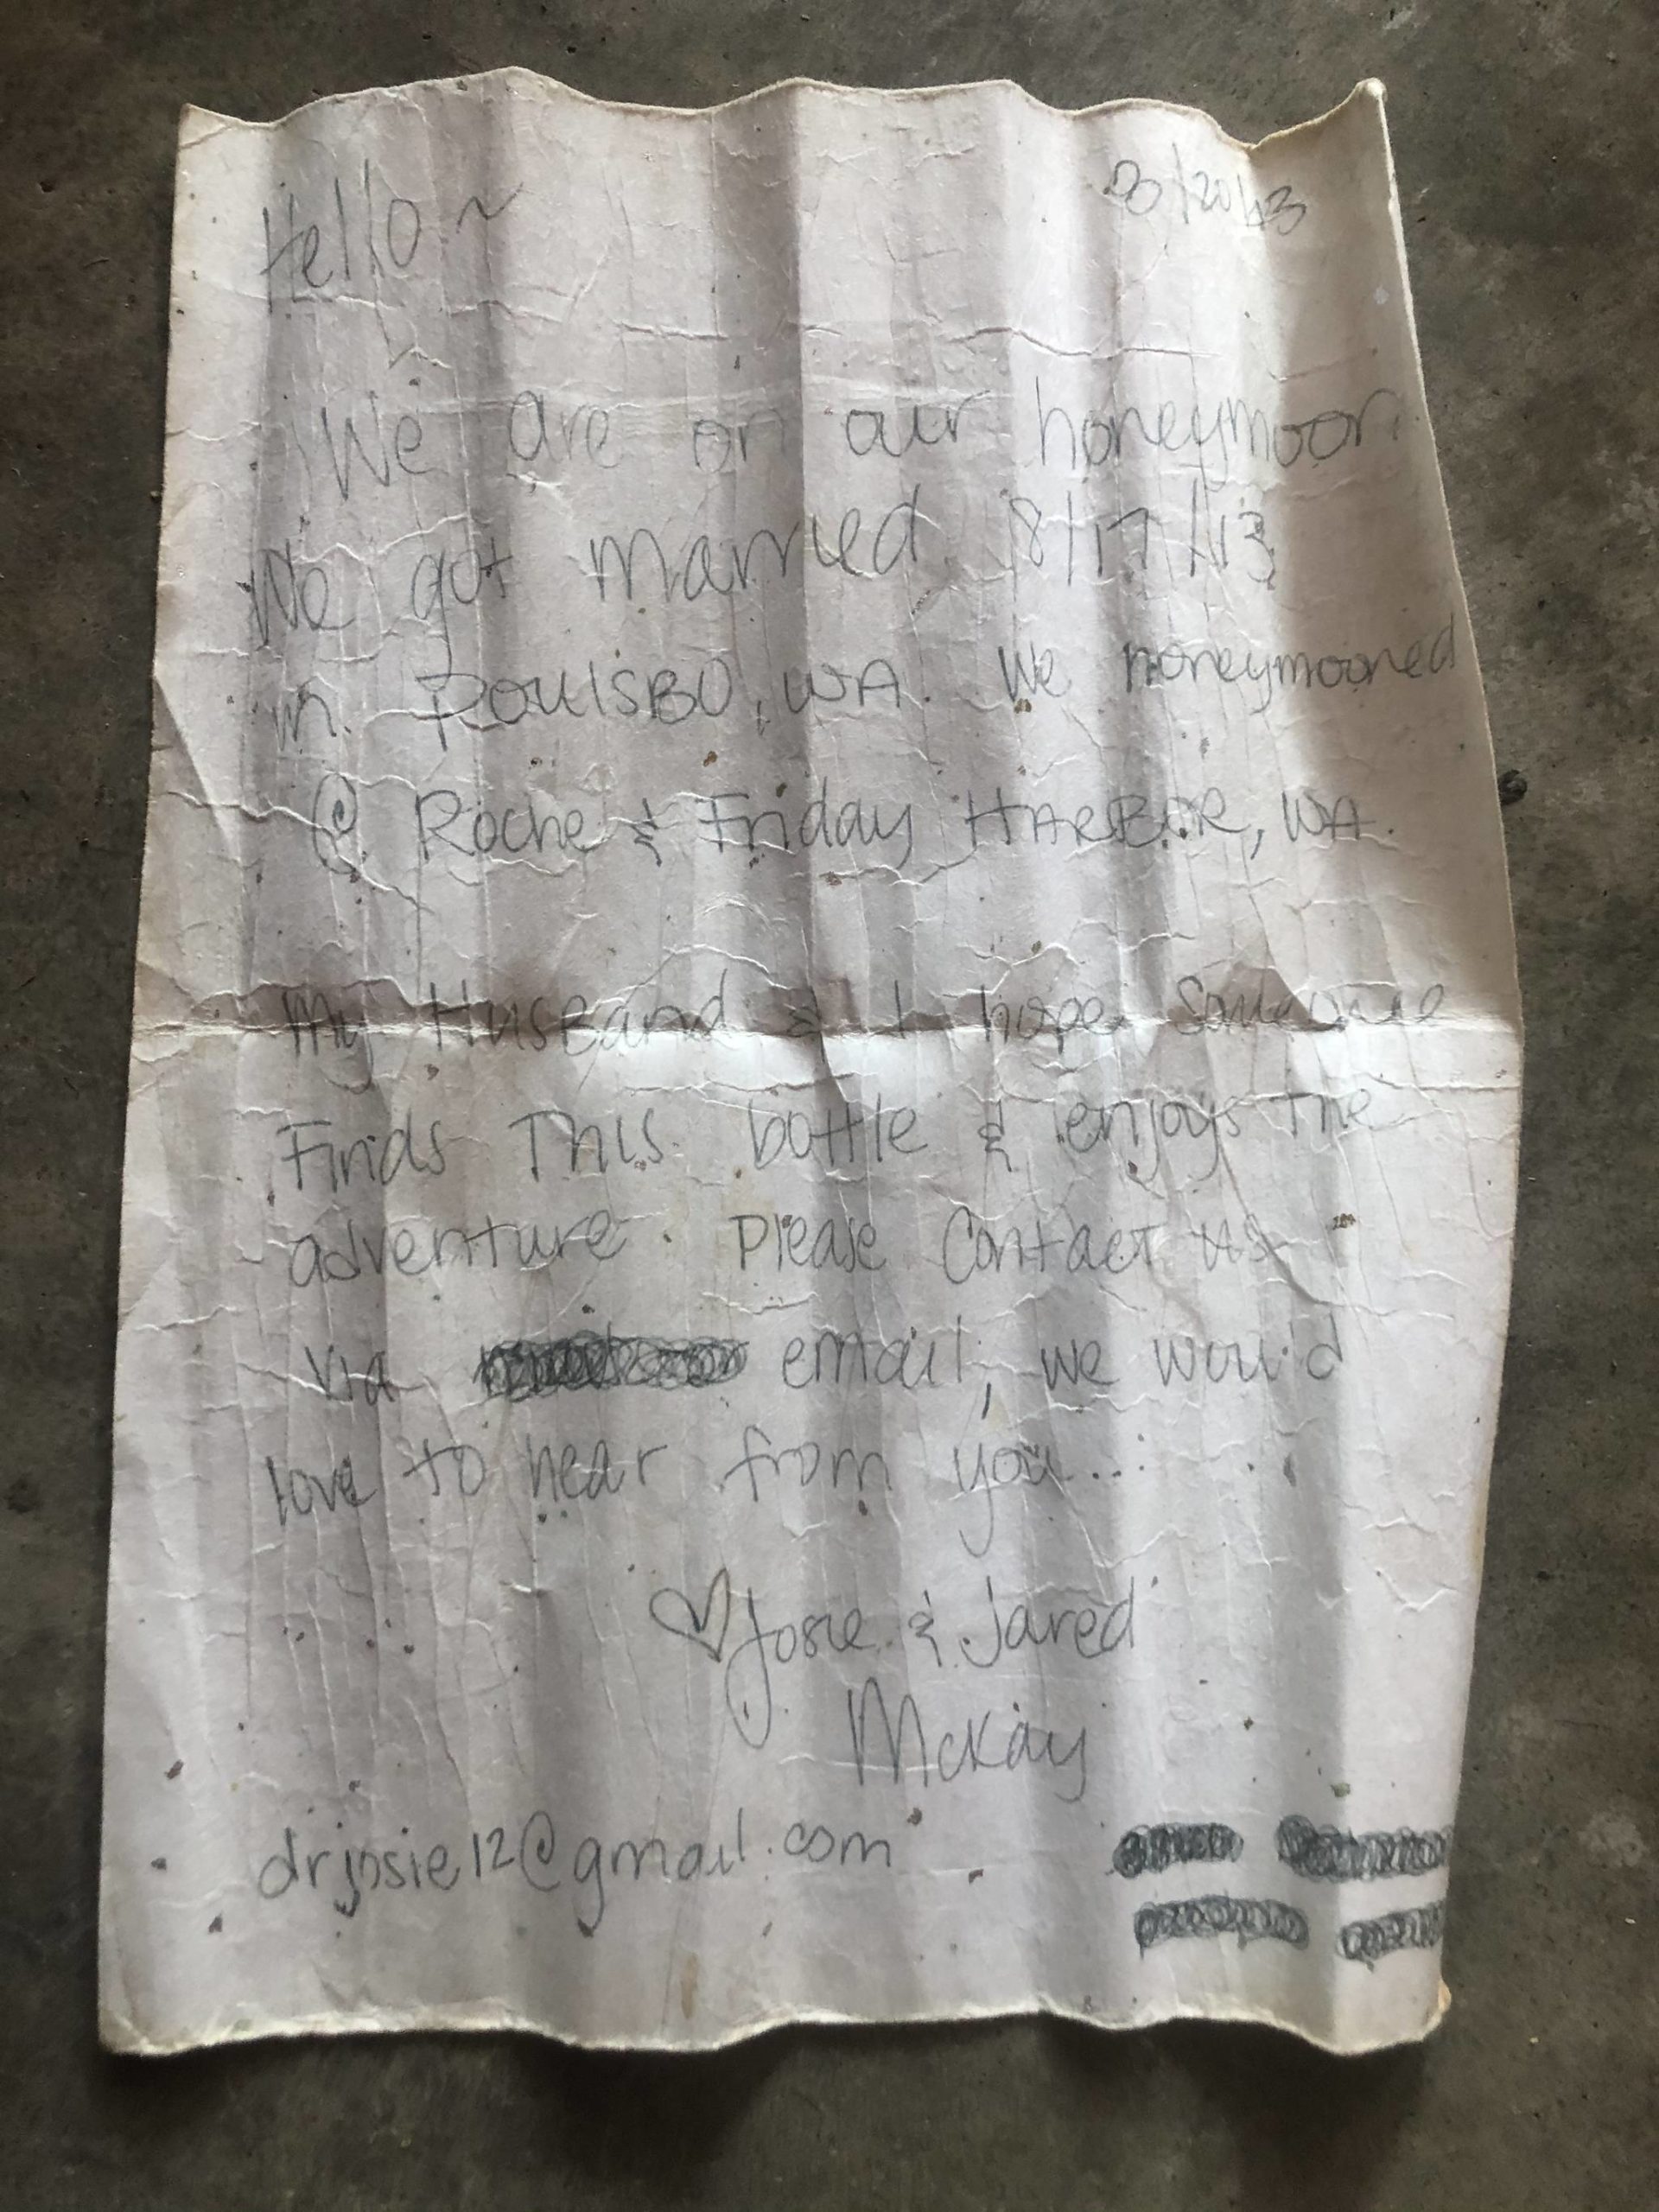 Hello ~ 8/20/13
We are on our honeymoon.
We got married 8/17/13
in PoulsBO, WA. We honeymooned
@ Roche & Friday HARBOR, WA.
My HusBand & I hope someone
Finds This bottle & enjoys the
adventure. Please Contact us
via email, we would
love to hear from you...
♡ Josie & Jared
McKay
drjosie12@gmail.com